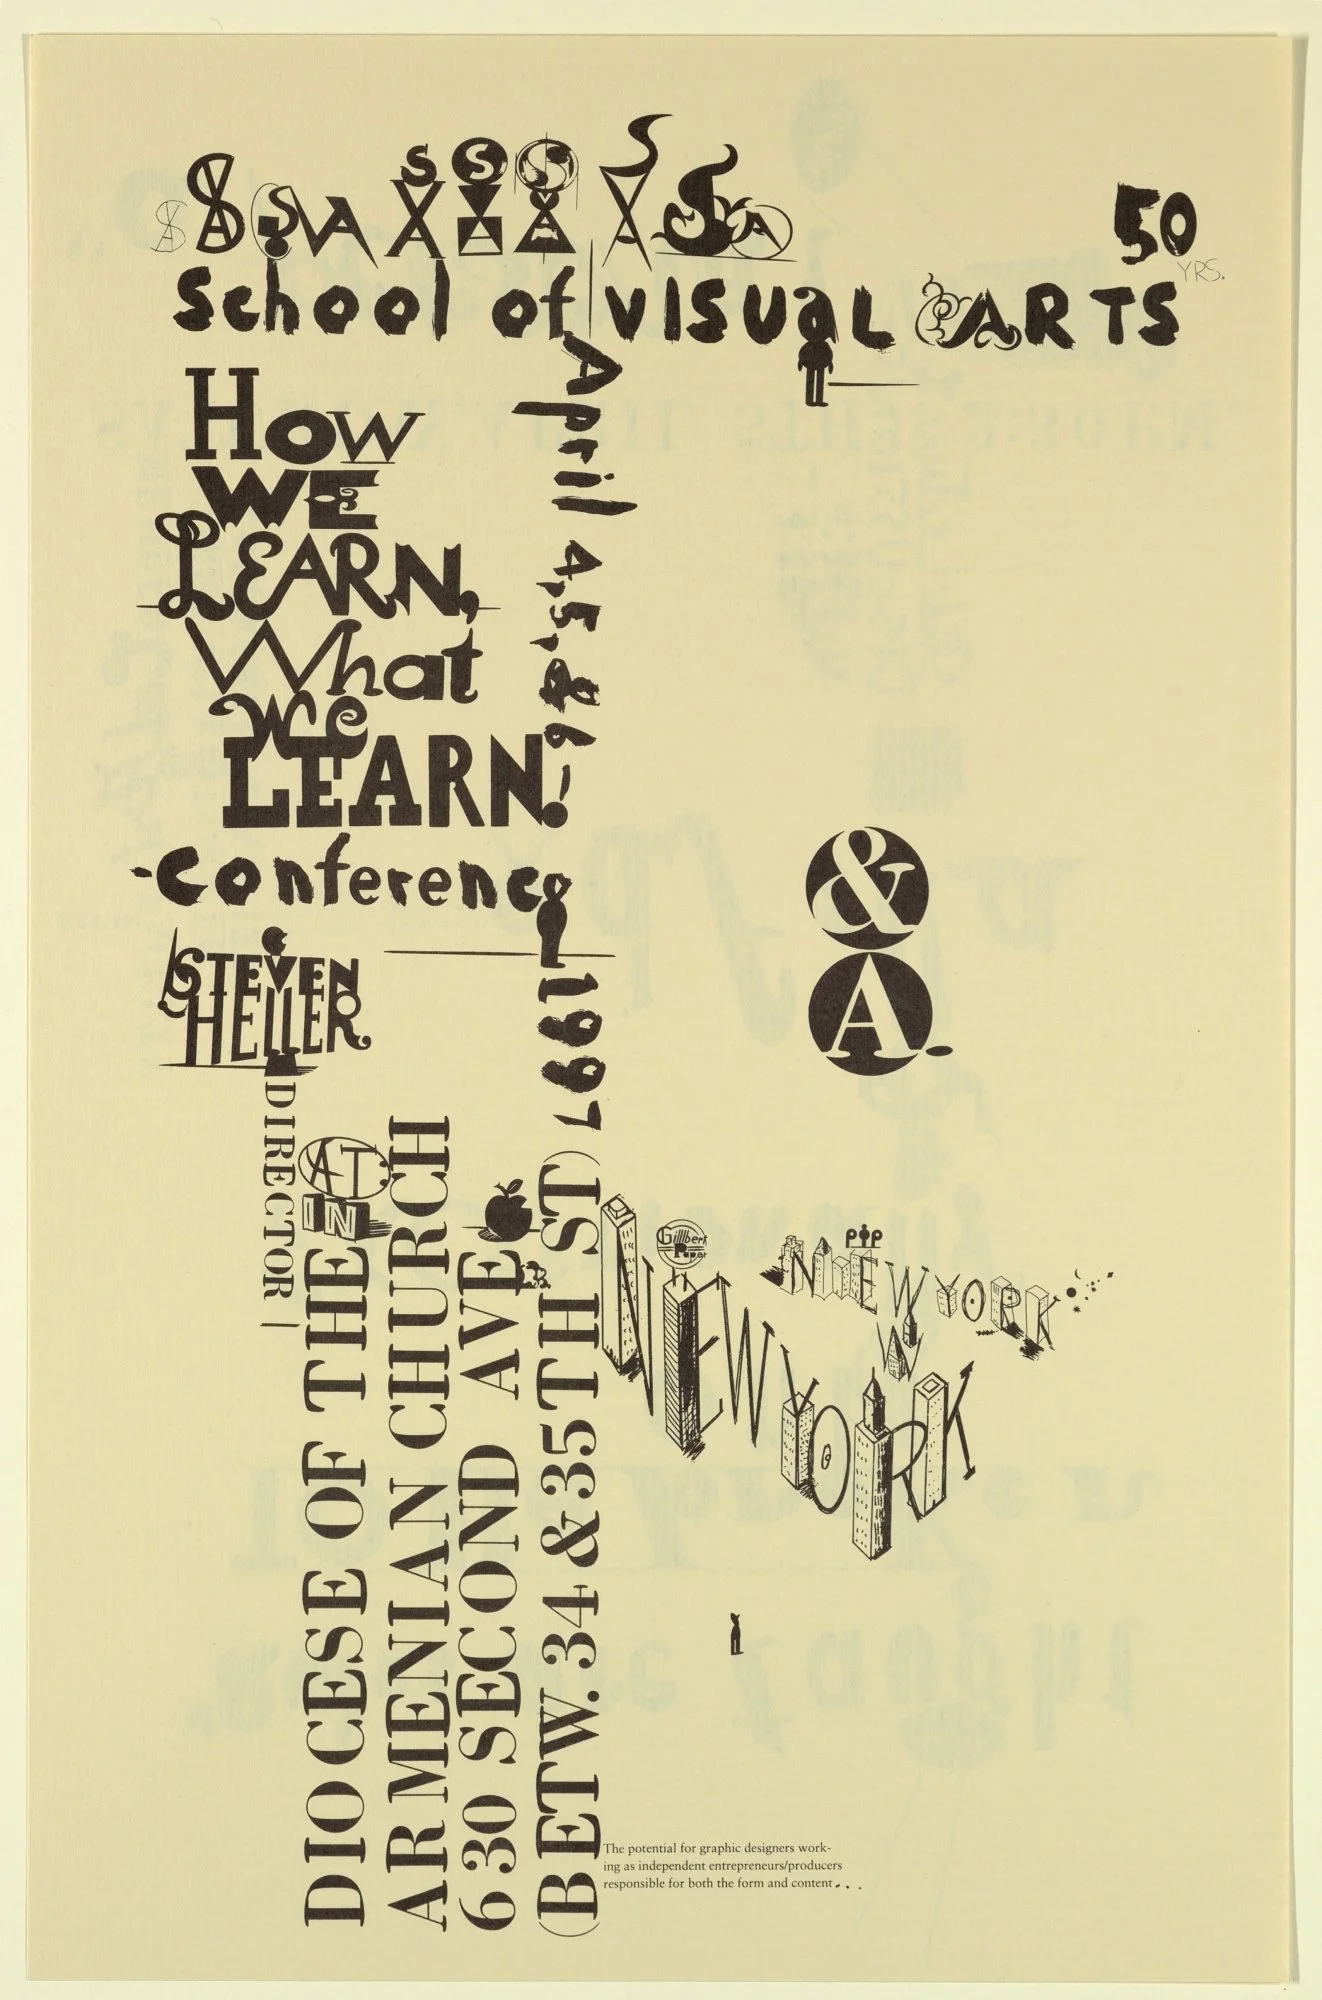 S SVA SVA SVA SVA SVA SVA SVA
50
YRS.
School of VISUAL ARTS
How
WE
LEARN,
What
we
LEARN.
Conference
April 4, 5, & 6 – 1997
STEVEN
HELLER
DIRECTOR
AT
IN
DIOCESE OF THE
ARMENIAN CHURCH
630 SECOND AVE
(BETW. 34 & 35TH ST)
&
A
Gilbert
Paper
NEW YORK
PIP
NEW YORK
The potential for graphic designers work-
ing as independent entrepreneurs/producers
responsible for both the form and content . . .